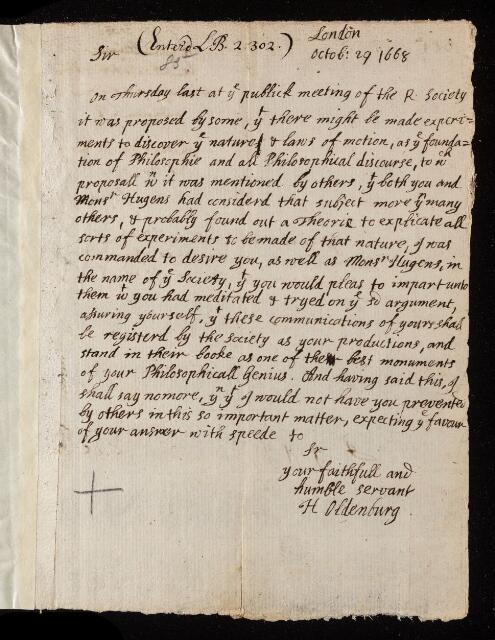 (Enterd L.B. 2. 302.)
London
Sir
85
octob: 29 1668
On Thursday last at yᵉ publick meeting of the R. Society
it was proposed by some, yᵗ there might be made experi-
ments to discover yᵉ nature & laws of motion, as yᵉ founda=
tion of Philosophie and all Philosophical discourse, to wᶜʰ
proposall wⁿ it was mentioned by others, yᵗ both you and
Monsʳ Hugens had considerd that subject more yⁿ many
others, & probably found out a Theorie to explicate all
sorts of experiments to be made of that nature, J was
commanded to desire you, as well as Monsʳ Hugens, in
the name of yᵉ Society, yᵗ you would pleas to impart unto
them wᵗ you had meditated & tryed on yᵉ sᵈ argument,
assuring yourself, yᵗ these communications of yours shall
be registerd by the Society as your productions, and
stand in their booke as one of the best monuments
of your Philosophicall Genius. And having said this, J
shall say nomore, yⁿ yᵗ J would not have you prevented
by others in this so important matter, expecting yᵉ favour
of your answer with speede to
Sr
your faithfull and
humble servant
H Oldenburg